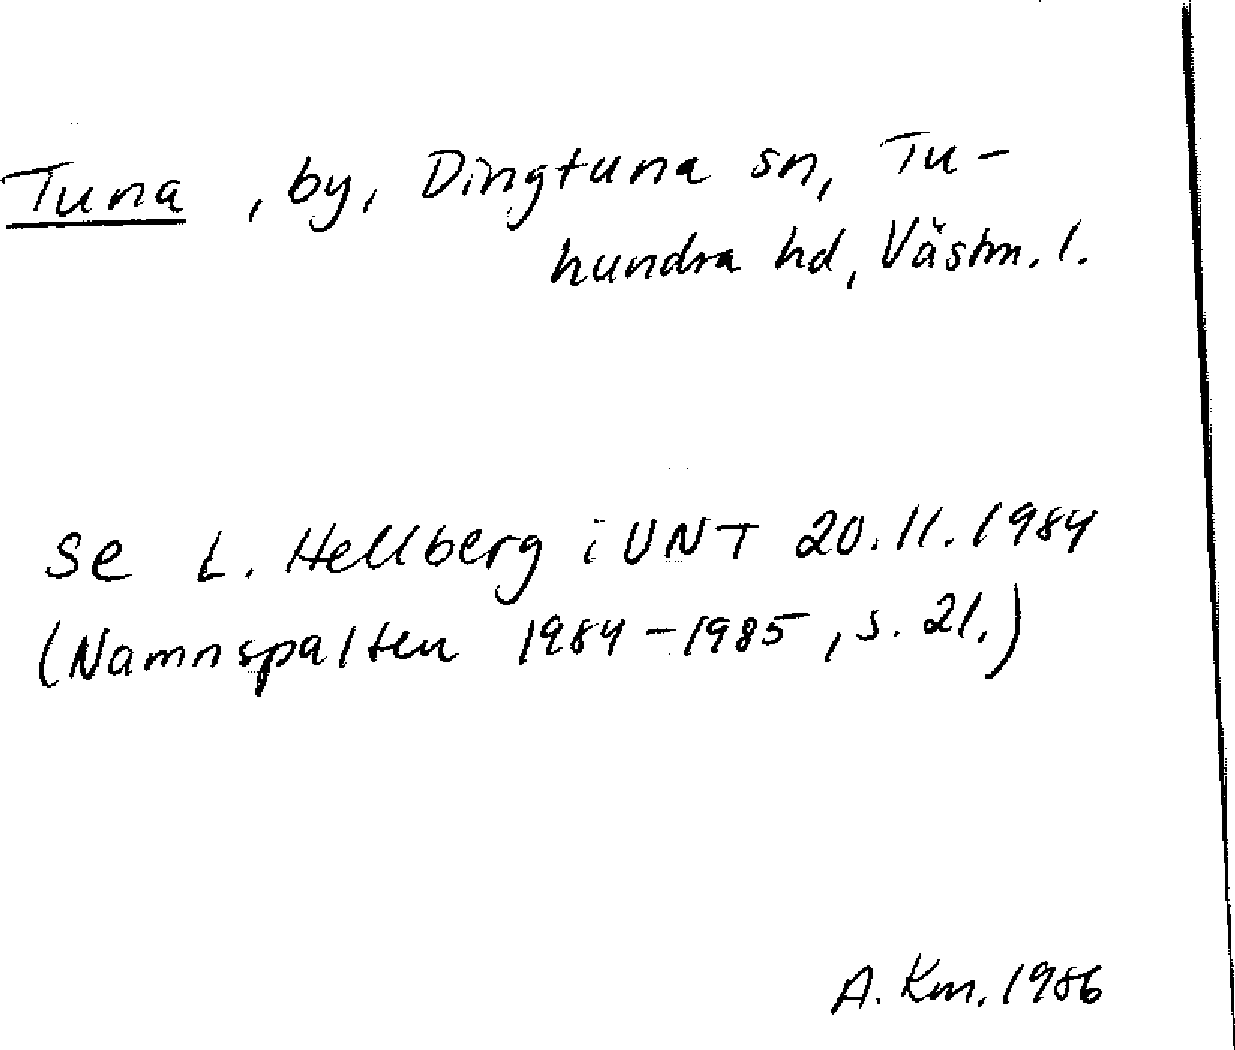 Tuna, by, Dingtuna sn, Tu-
hundra hd, Västm. l.
Se L. Hellberg i UNT 20.11.1984
(Namnspalten 1984-1985, s. 21.)
A. Km. 1986